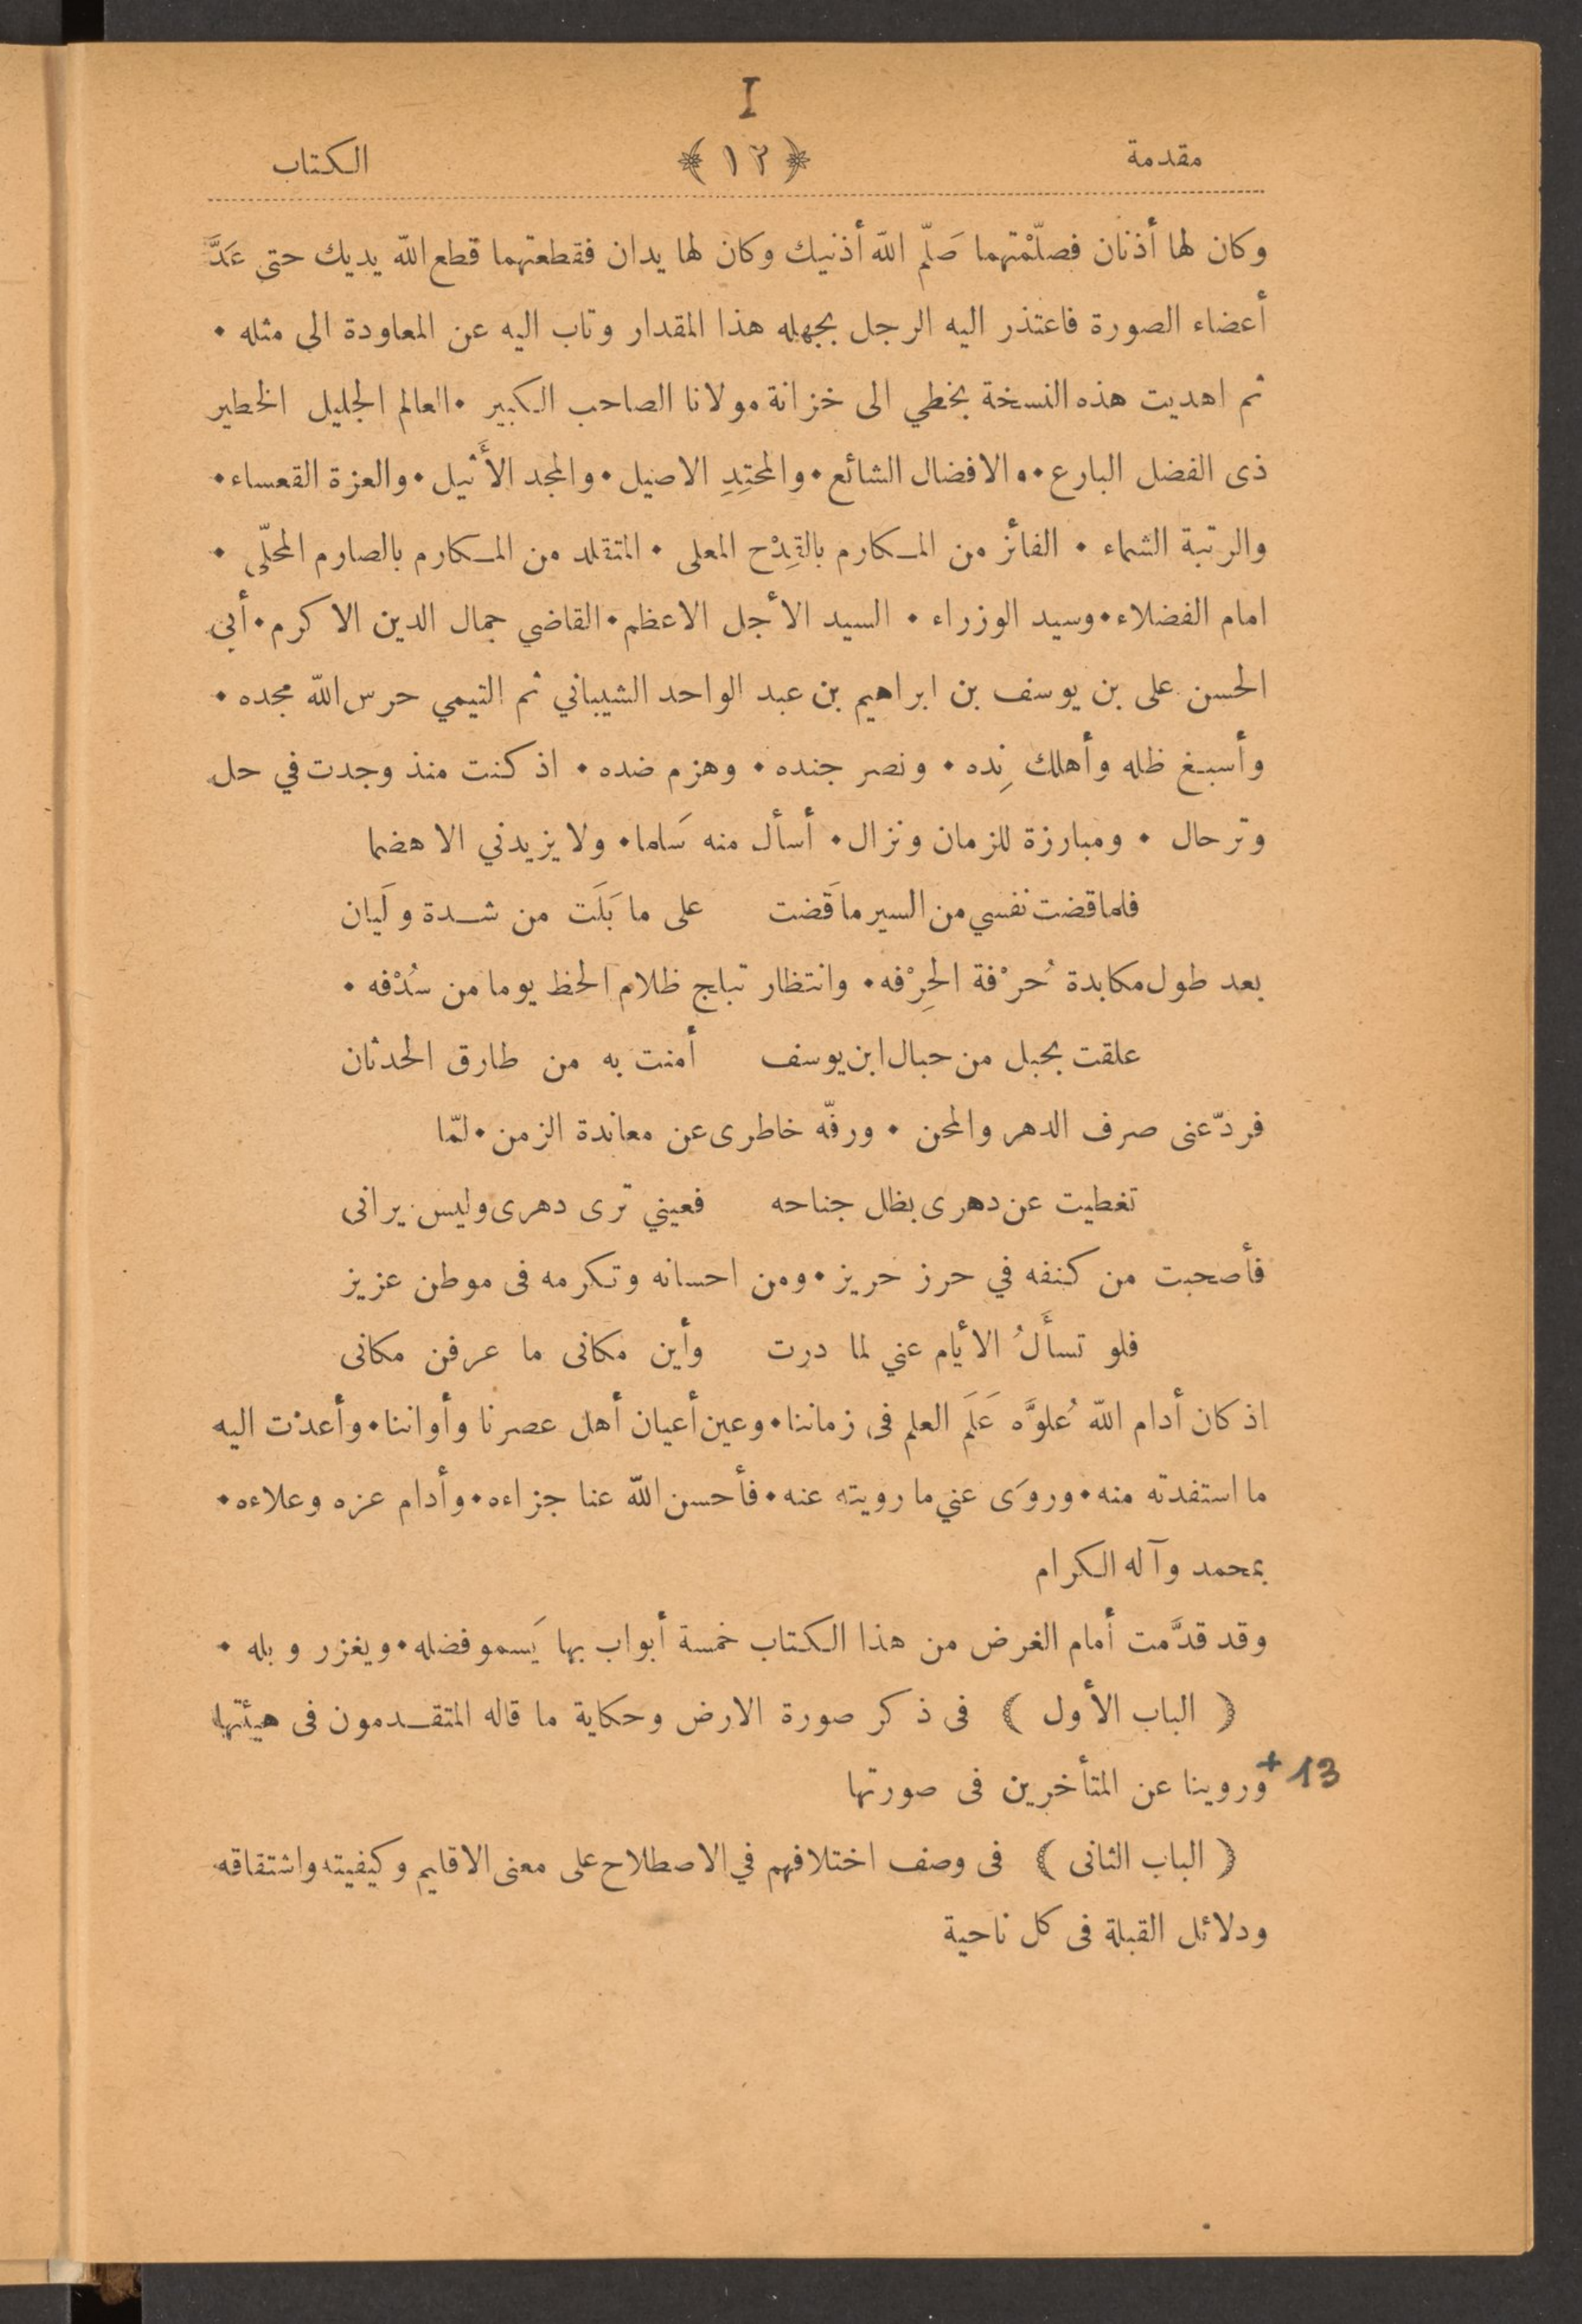 I
مقدمة ﴿١٢﴾ الكتاب
وكان لها أذنان فصلّمْتهما صَلّم الله أذنيك وكان لها يدان فقطعتهما قطع الله يديك حتى عَدَّ
أعضاء الصورة فاعتذر اليه الرجل بجهله هذا المقدار وتاب اليه عن المعاودة الى مثله •
ثم اهديت هذه النسخة بخطي الى خزانة مولانا الصاحب الكبير • العالم الجليل الخطير
ذى الفضل البارع • والافضال الشائع • والمحتِدِ الاصيل • والمجد الأَثيل • والعزة القعساء •
والرتبة الشماء • الفائز من المكارم بالقِدْح المعلى • المتقلد من المكارم بالصارم المحلّى •
امام الفضلاء • وسيد الوزراء • السيد الأجل الاعظم • القاضي جمال الدين الاكرم • أبي
الحسن على بن يوسف بن ابراهيم بن عبد الواحد الشيباني ثم التيمي حرس الله مجده •
وأسبغ ظله وأهلك نِده • ونصر جنده • وهزم ضده • اذ كنت منذ وجدت في حل
وترحال • ومبارزة للزمان ونزال • أسأل منه سَلما • ولا يزيدني الا هضما
فلما قضت نفسي من السير ما قَضت على ما بَلَت من شدة ولَيان
بعد طول مكابدة حُرْفة الحِرْفه • وانتظار تبلج ظلام الحظ يوما من سُدْفه •
علقت بحبل من حبال ابن يوسف أمنت به من طارق الحدثان
فردّ عنى صرف الدهر والمحن • ورفّه خاطرى عن معاندة الزمن • لمّا
تغطيت عن دهرى بظل جناحه فعيني ترى دهرى وليس يرانى
فأصحبت من كنفه في حرز حريز • ومن احسانه وتكرمه فى موطن عزيز
فلو تسأَلُ الأيام عني لما درت وأين مكانى ما عرفن مكانى
اذ كان أدام الله عُلوَّه عَلَم العلم فى زماننا • وعين أعيان أهل عصرنا وأواننا • وأعذت اليه
ما استفدته منه • وروَى عني ما رويته عنه • فأحسن الله عنا جزاءه • وأدام عزه وعلاءه •
بمحمد وآله الكرام
وقد قدَّمت أمام الغرض من هذا الكتاب خمسة أبواب بها يَسمو فضله • ويغزر وبله •
﴿ الباب الأول ﴾ فى ذكر صورة الارض وحكاية ما قاله المتقدمون فى هيئتها
وروينا عن المتأخرين فى صورتها + 13
﴿ الباب الثانى ﴾ فى وصف اختلافهم في الاصطلاح على معنى الاقليم وكيفيته واشتقاقه
ودلائل القبلة فى كل ناحية